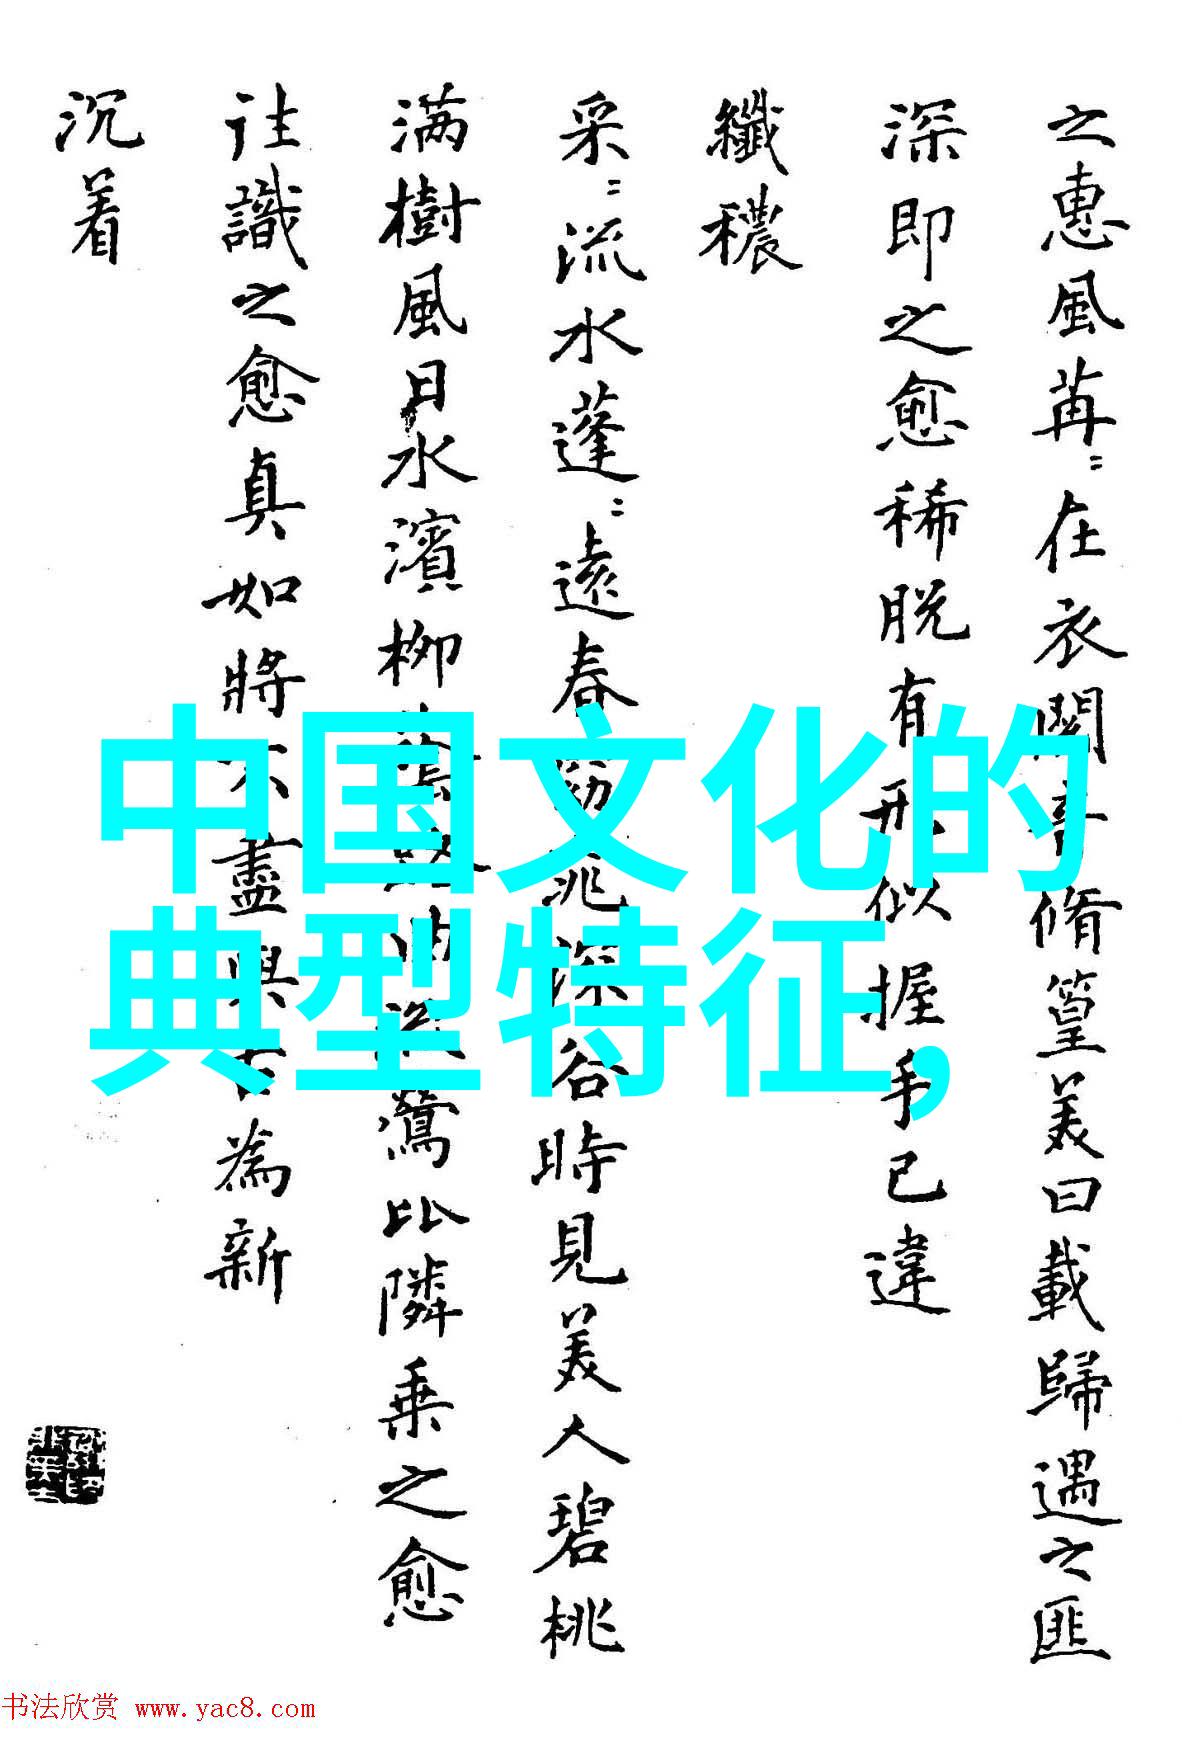 之惠風苒〻在衣閱音脩篁美曰載歸遇之匪
深即之愈稀脱有形似握手已違
纖穠
采〻流水蓬〻遠春窈窕深谷時見美人碧桃
满樹風日水濱柳陰路曲流鶯比隣乗之愈
往識之愈真如將不盡與古為新
沉着
中国文化的
典型特征,
书法欣赏 www.yac8.com